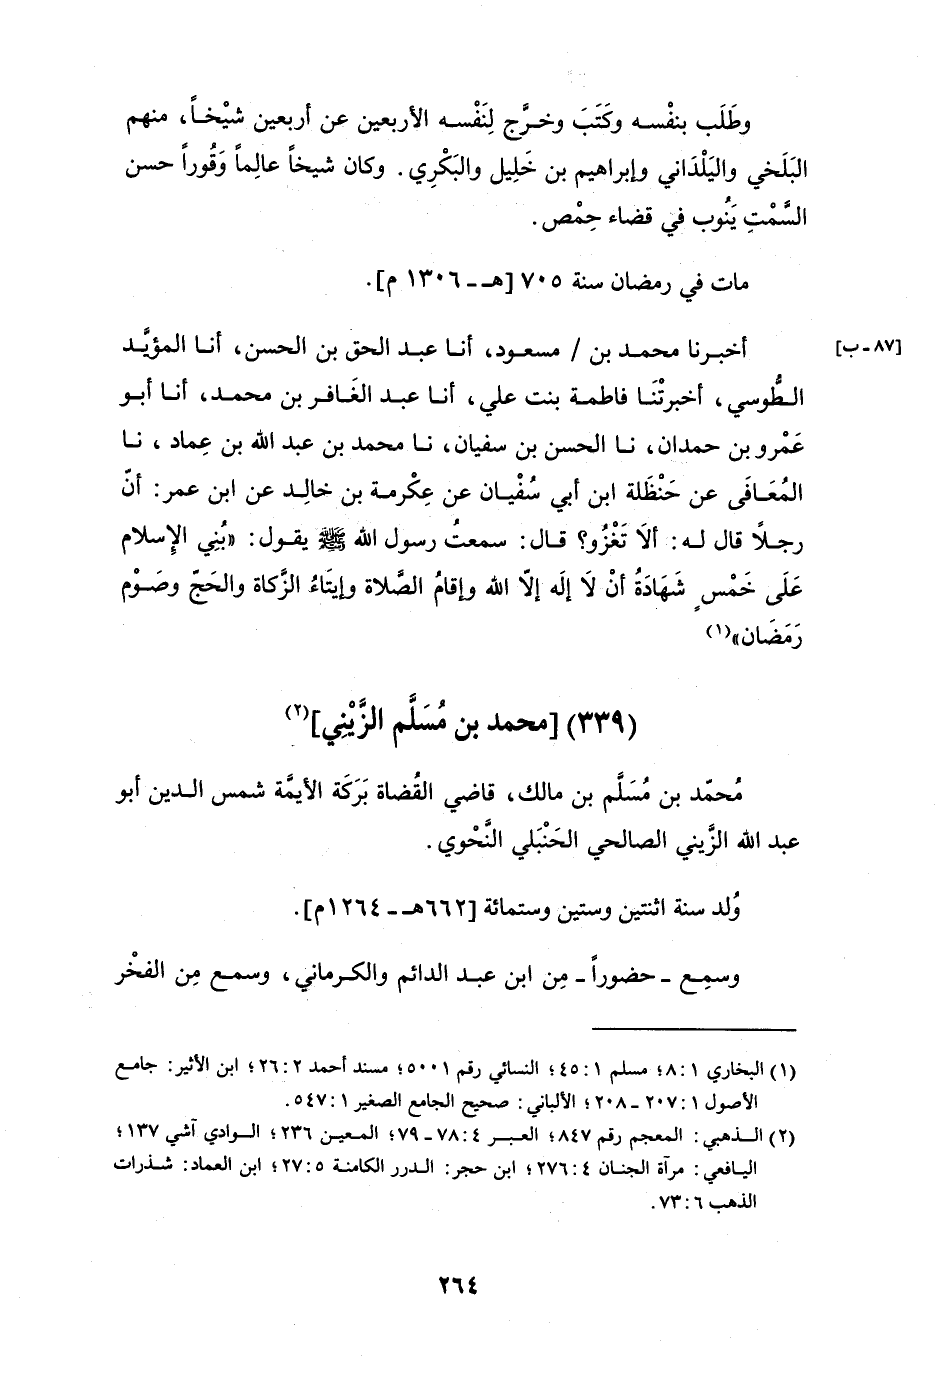 وطَلَب بنفْسه وكَتَبَ وخرَّج لِنَفْسه الأربعين عن أربعين شيْخاً، منهم
البَلَخي واليَلْدَاني وإبراهيم بن خَلِيل والبَكْرِي. وكان شيخاً عالِماً وَقُوراً حسن
السَّمْتِ يَنُوب في قضاء حِمْص.
مات في رمضان سنة ٧٠٥ [هـ ـ ١٣٠٦ م].
أخبرنا محمد بن / مسعود، أنا عبد الحق بن الحسن، أنا المؤيَّد [٨٧ ـ ب]
الطُّوسي، أخبرتْنَا فاطمة بنت علي، أنا عبد الغَافر بن محمد، أنا أبو
عَمْرو بن حمدان، نا الحسن بن سفيان، نا محمد بن عبد الله بن عِماد، نا
المُعَافَى عن حَنْظَلة ابن أبي سُفْيان عن عِكْرمة بن خالد عن ابن عمر: أنّ
رجلاً قال له: ألَا تَغْزُو؟ قال: سمعتُ رسول الله ﷺ يقول: «بُنِي الإِسلام
عَلَى خَمْسٍ شَهَادَةُ أنْ لَا إلَه إلّا الله وإقامُ الصَّلاة وإيتَاءُ الزَّكاة والحَجّ وصَوْم
رَمَضَان»(١)
(٣٣٩) [محمد بن مُسَلَّم الزَّيْنِي](٢)
مُحمّد بن مُسَلَّم بن مالك، قاضي القُضاة بَرَكَة الأيمَّة شمس الدين أبو
عبد الله الزَّيني الصالحي الحَنْبَلي النَّحْوي.
وُلد سنة اثنتين وستين وستمائة [٦٦٢هـ ـ ١٢٦٤م].
وسمِع ـ حضوراً ـ مِن ابن عبد الدائم والكرماني، وسمع مِن الفخْر
(١) البخاري ١: ٨؛ مسلم ١: ٤٥؛ النسائي رقم ٥٠٠١؛ مسند أحمد ٢: ٢٦؛ ابن الأثير: جامع
الأصول ١: ٢٠٧ ـ ٢٠٨؛ الألباني: صحيح الجامع الصغير ١: ٥٤٧.
(٢) الذهبي: المعجم رقم ٨٤٧؛ العبر ٤: ٧٨ ـ ٧٩؛ المعين ٢٣٦؛ الوادي آشي ١٣٧؛
اليافعي: مرآة الجنان ٤: ٢٧٦؛ ابن حجر: الدرر الكامنة ٥: ٢٧؛ ابن العماد: شذرات
الذهب ٦: ٧٣.
٢٦٤